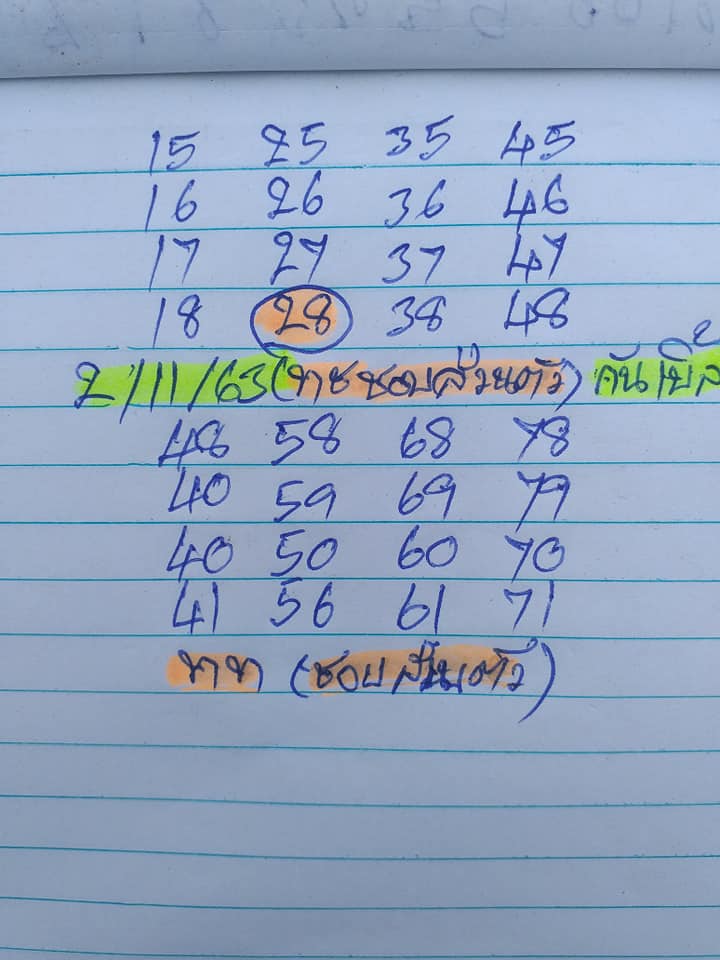 15 25 35 45
16 26 36 46
17 27 37 47
18 28 38 48
2/11/63 (ชอบส่วนตัว)
48 58 68 78
40 59 69 79
40 50 60 70
41 56 61 71
(ชอบส่วนตัว)